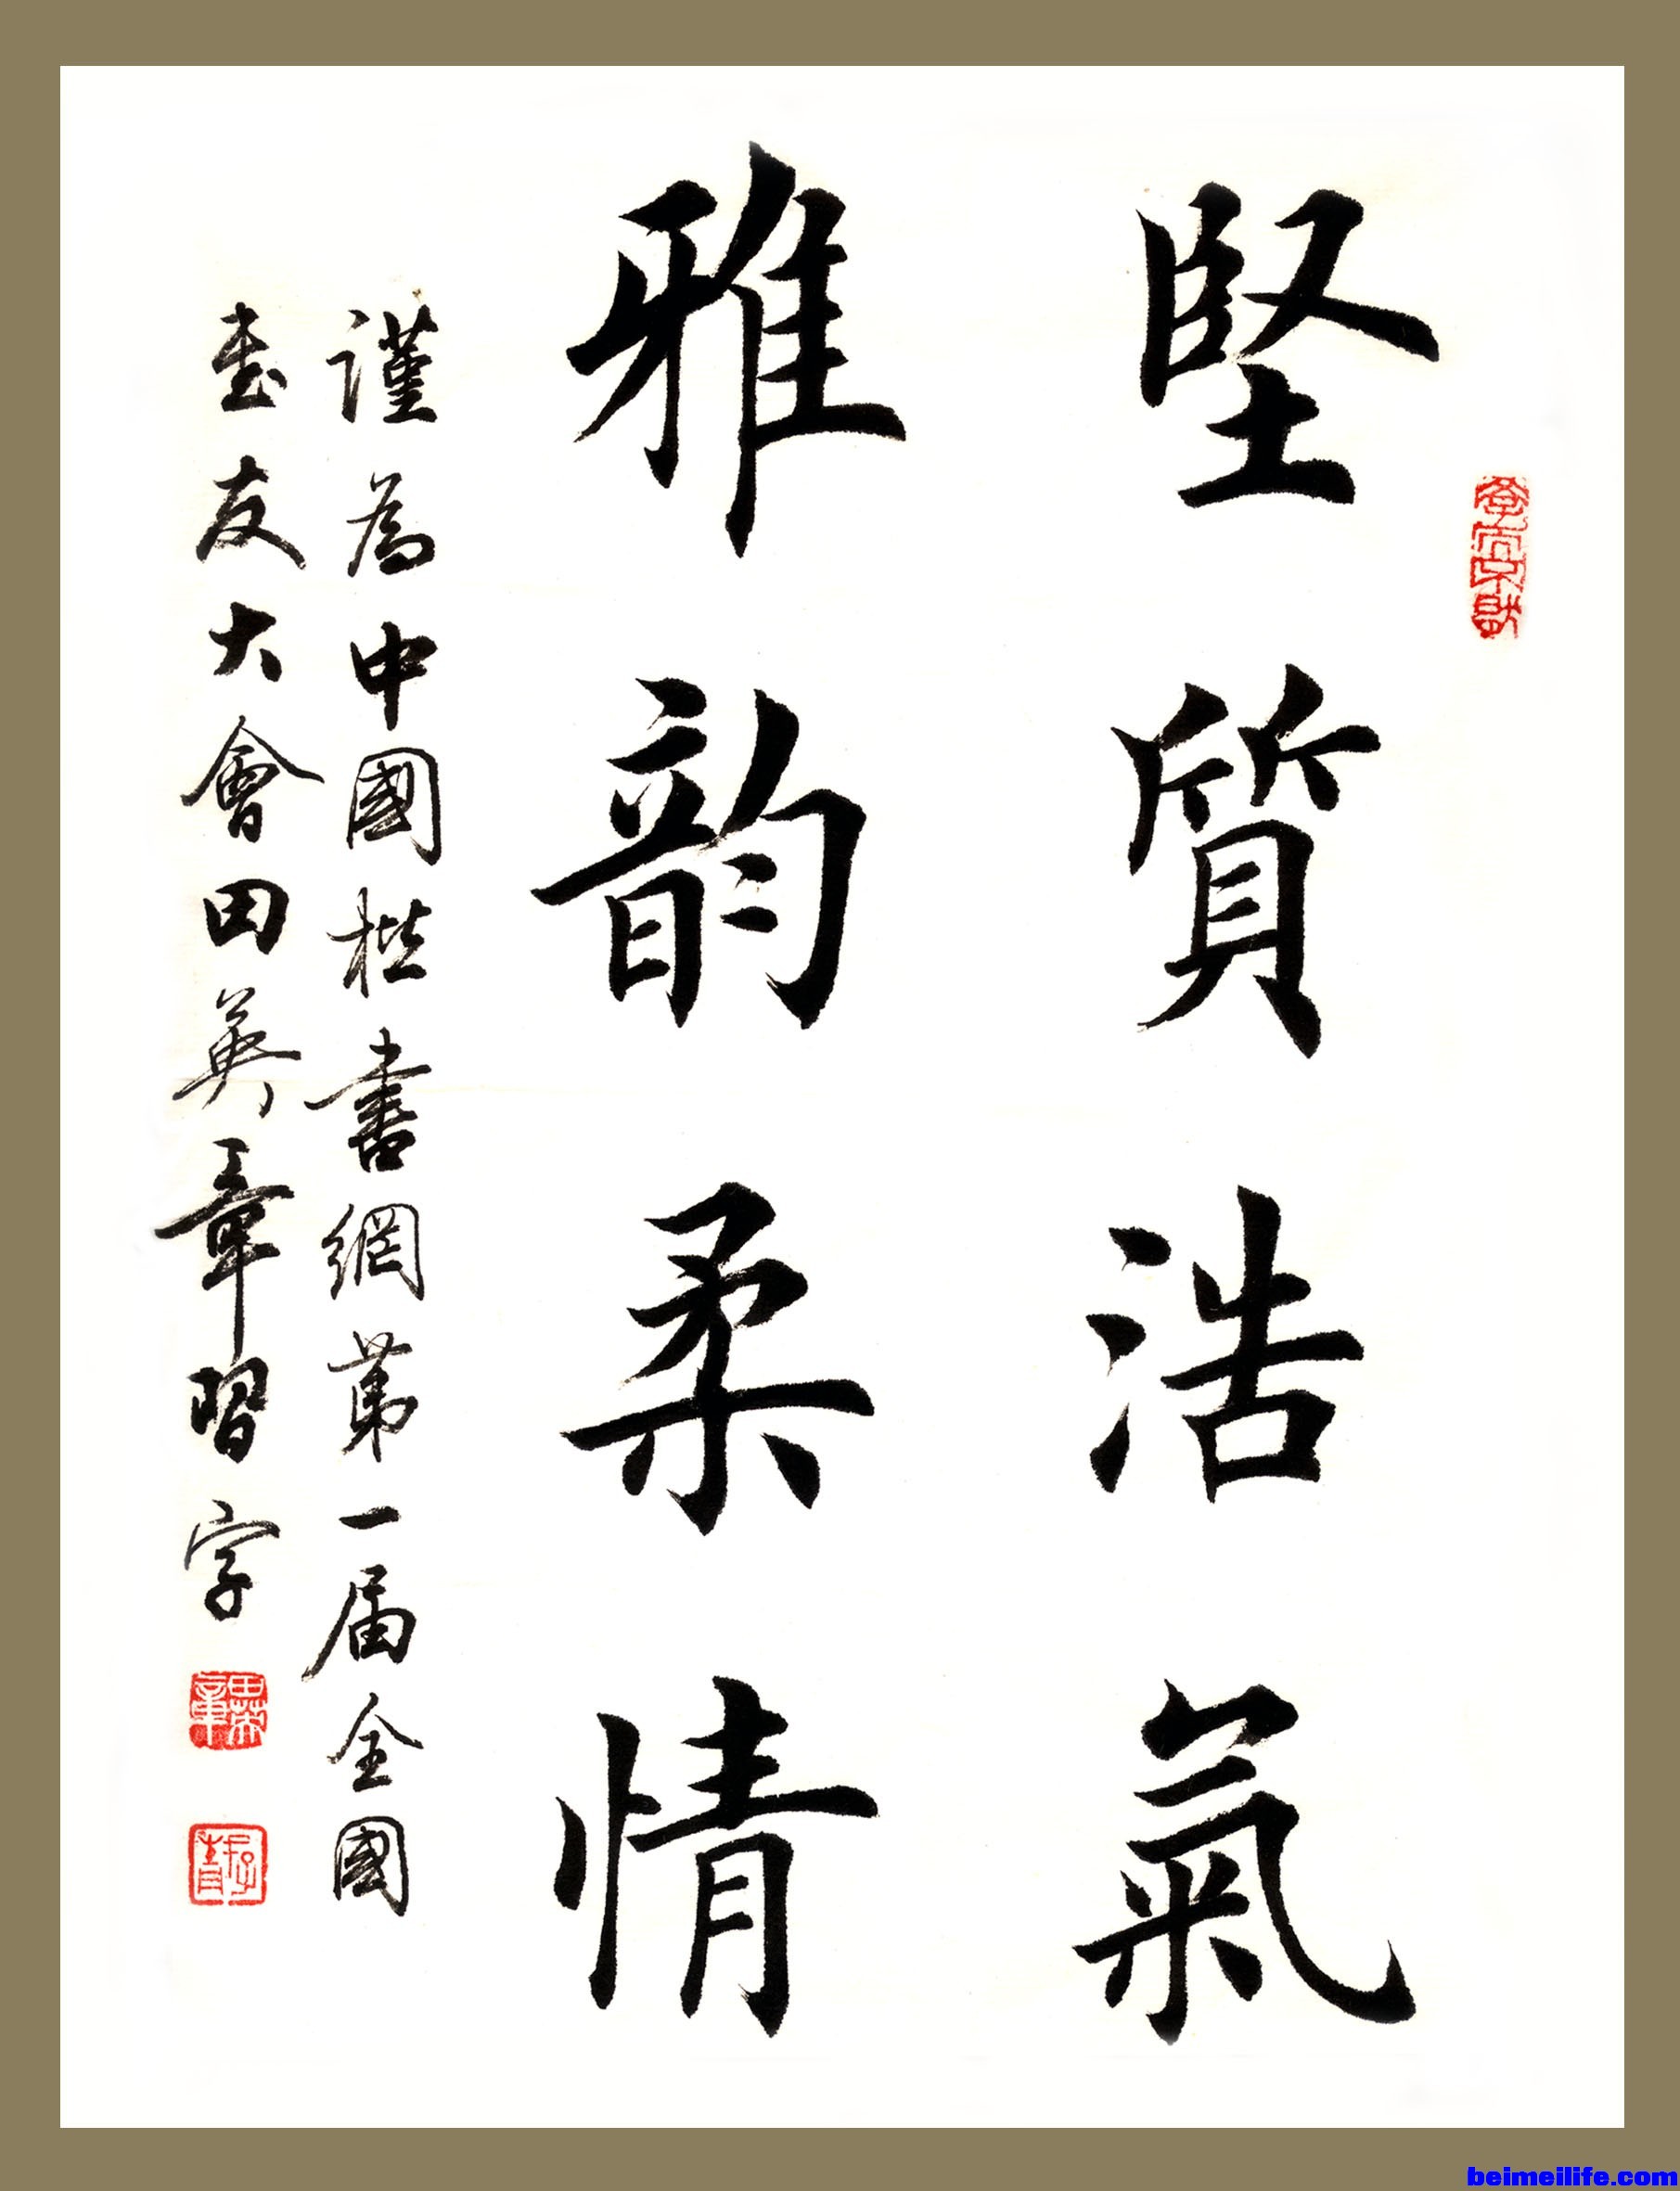 堅質浩氣
雅韵柔情
謹為中國楷書網第一届全國
书友大會田英章習字
beimeilife.com